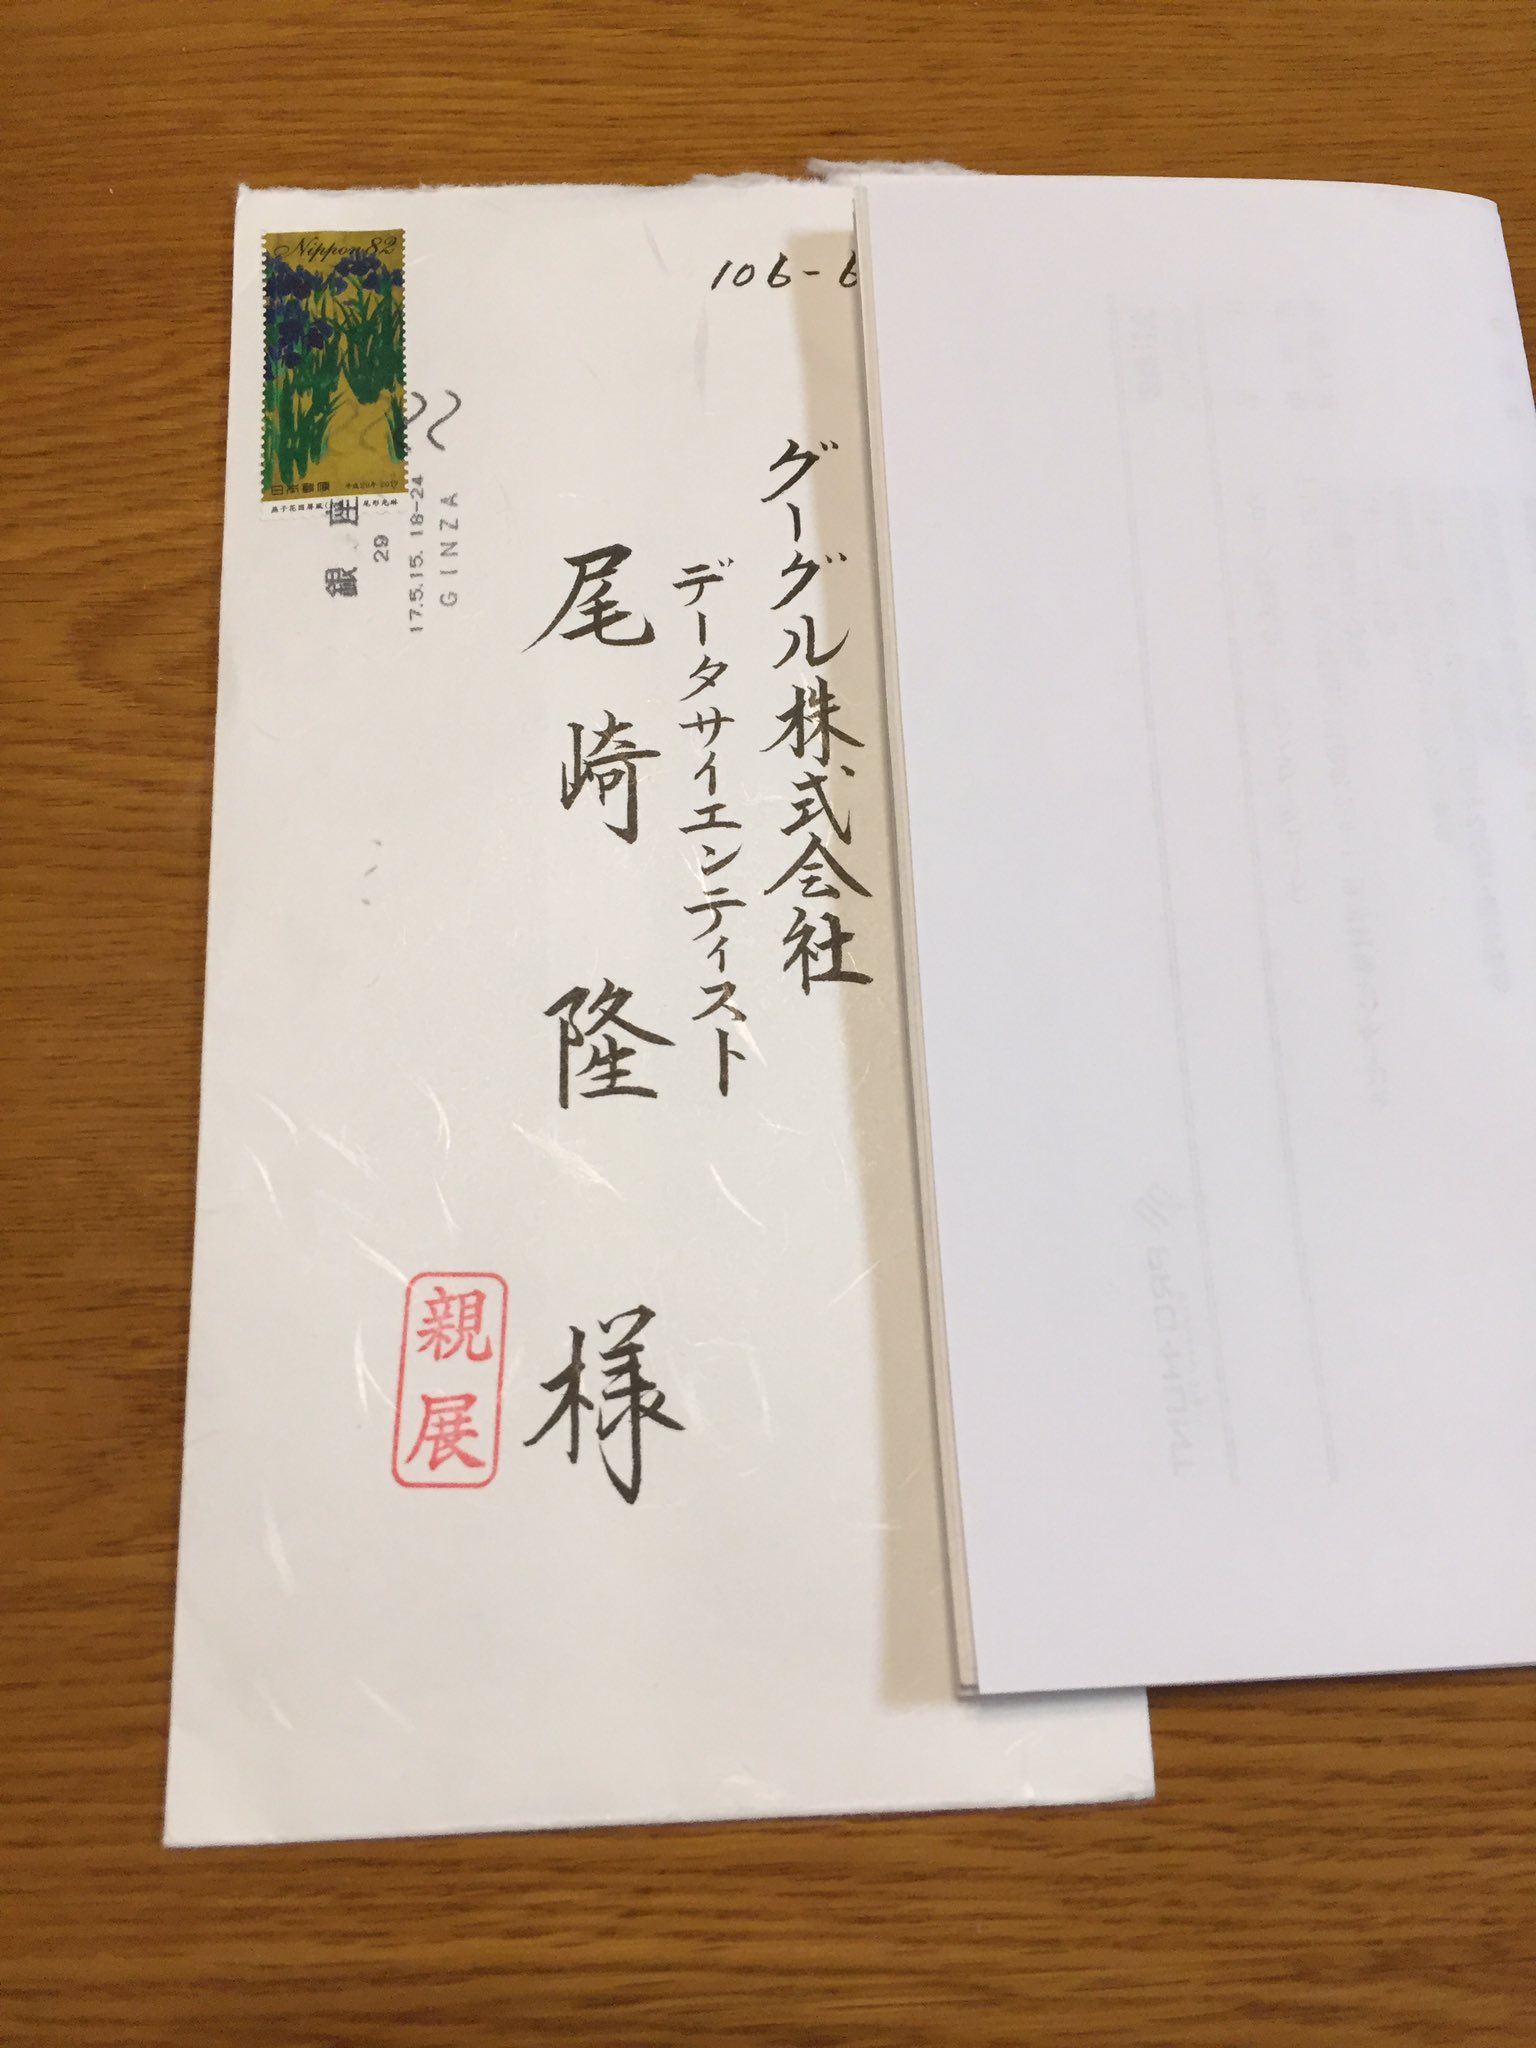 106-6
グーグル株式会社
データサイエンティスト
尾崎 隆 様
親展
Nippon 82
日本郵便 平成29年 2017
燕子花図屏風 尾形光琳
銀座
29
17.5.15. 18-24
GINZA